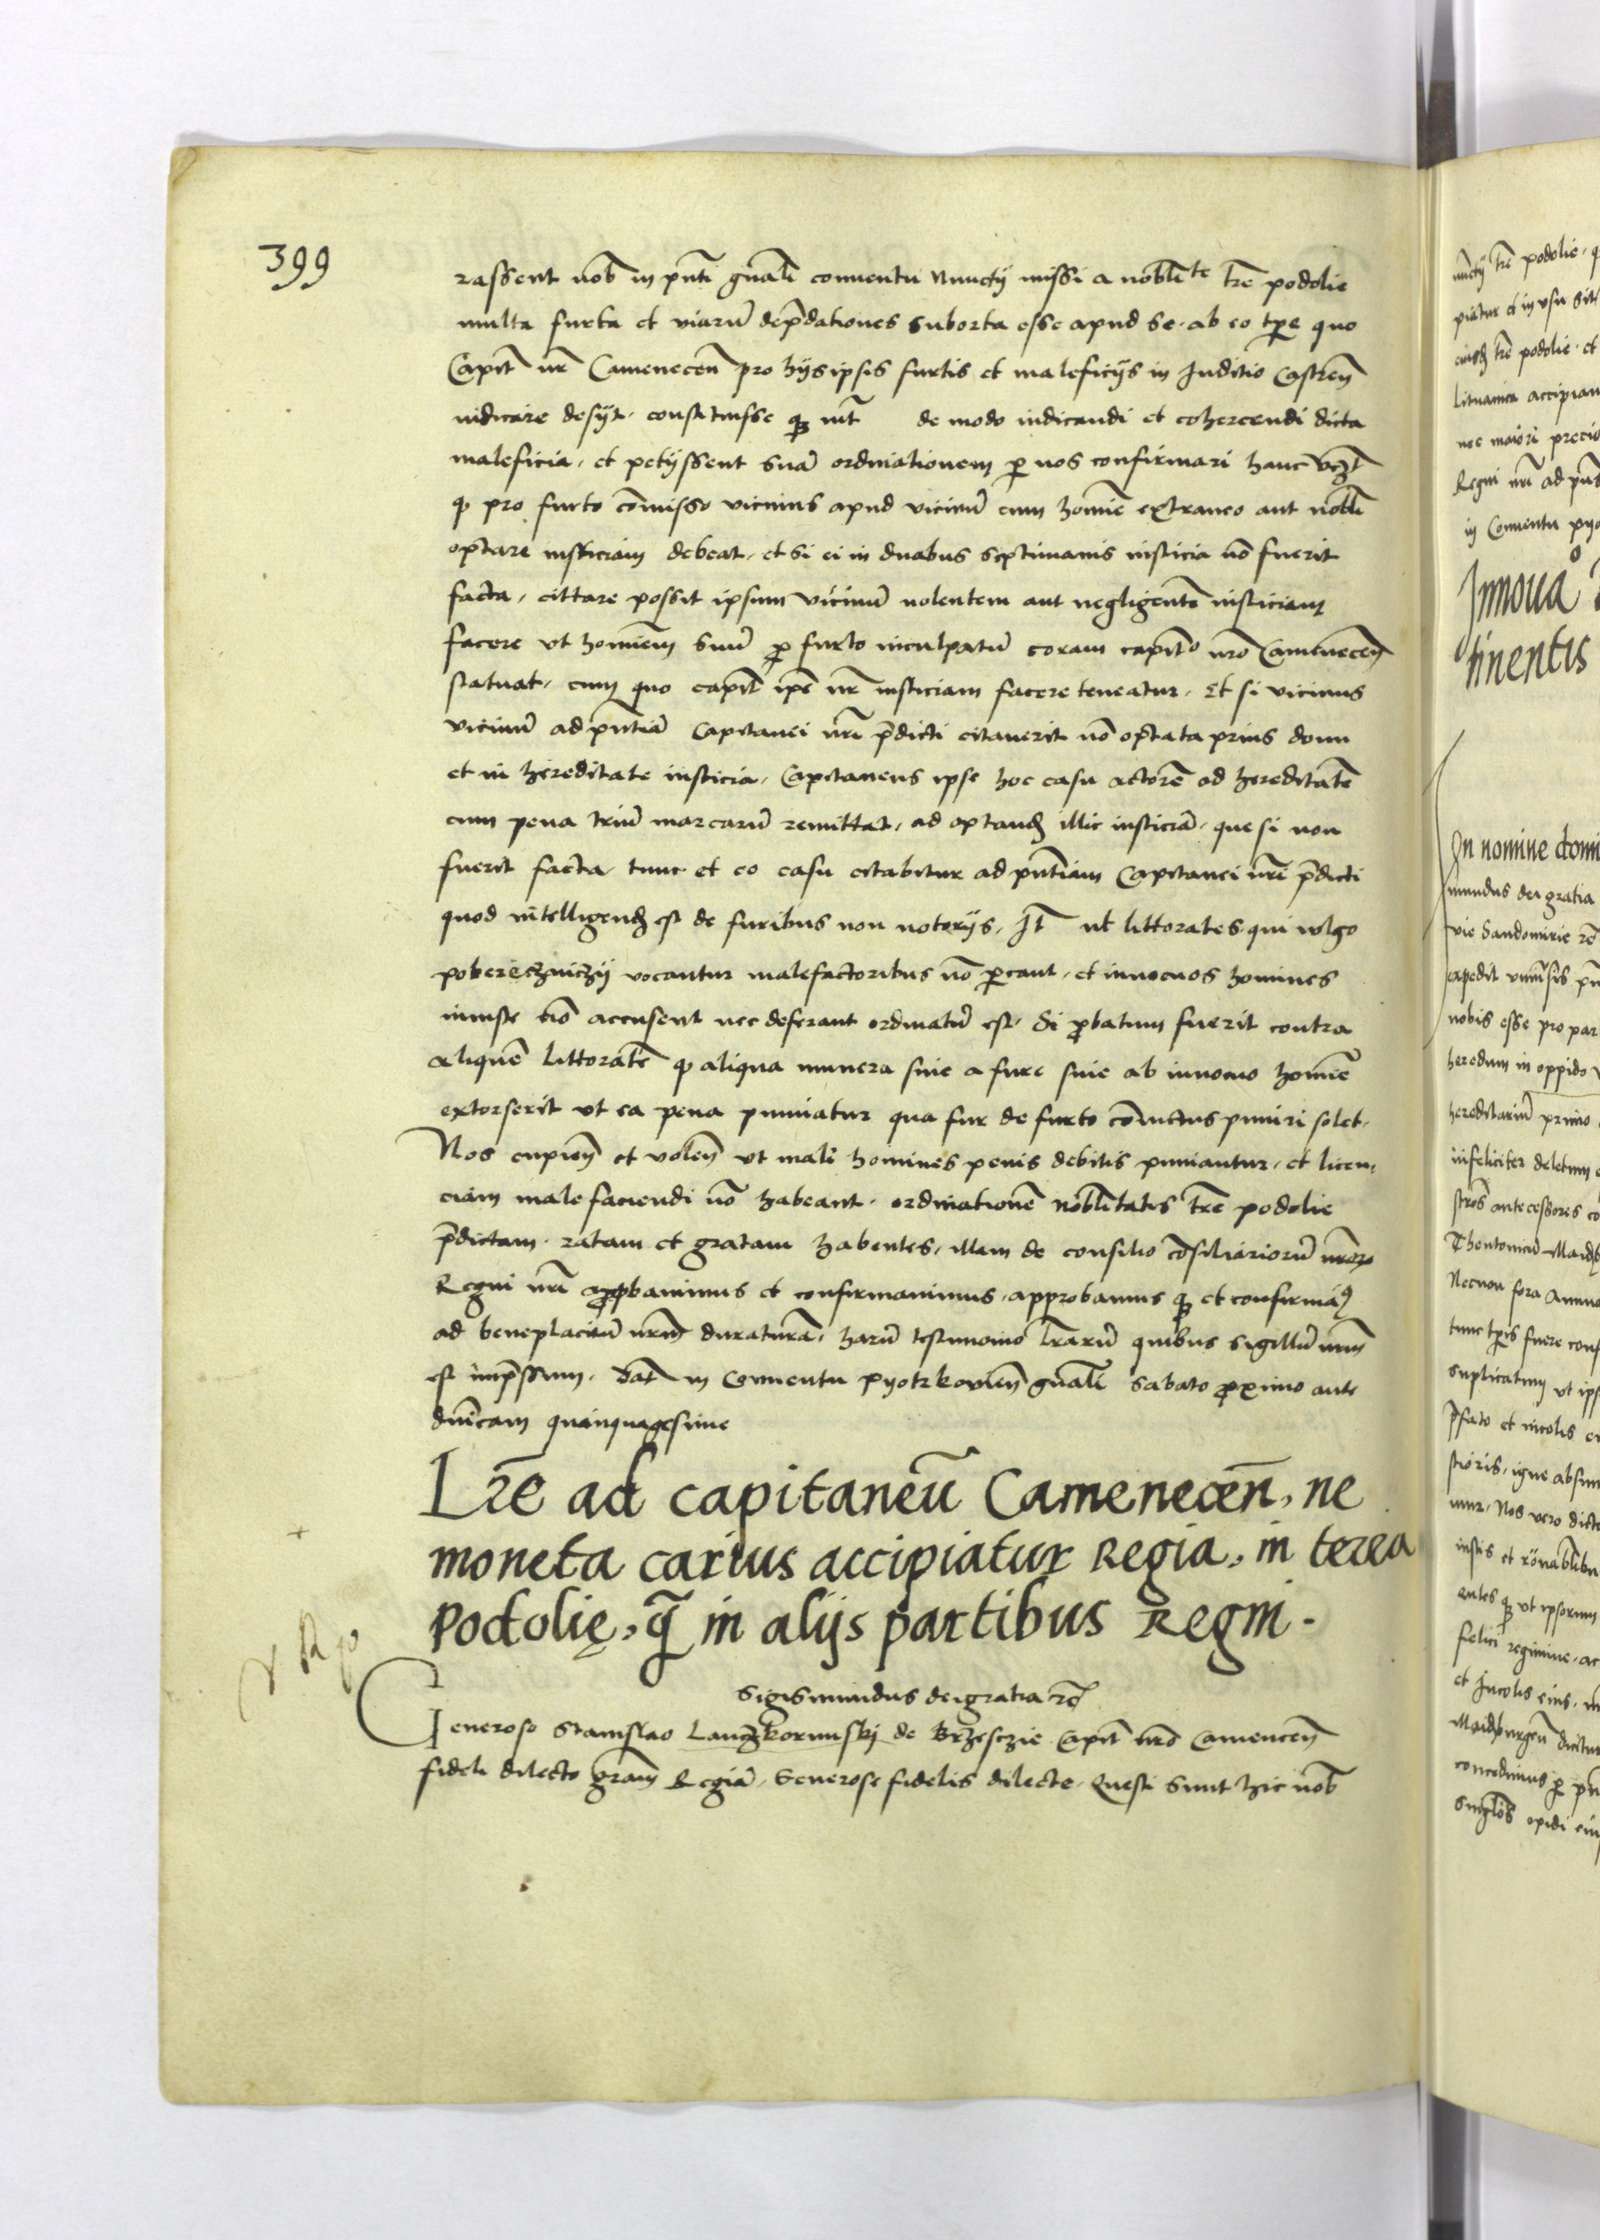 399
rassent nob̄ in pn̄ti gn̄ali conuentu Nunctij missi a nobl̄ite tr̄e podolie
multa furta et viarū dep̄dationes suborta esse apud se. ab eo tp̄e quo
Capit̄ nr̄ Camenecen̄ pro hijs ipsis furtis et maleficijs in Juditio Castren̄
iudicare desijt. constituisse qȝ int̄ de modo iudicandi et cohercendi dicta
maleficia, et petijssent suā ordinationem p nos confirmari hanc vcȝt
qp pro furto cōmisso vicinus apud vicinū cum homīe extraneo aut nobl̄i
optare iusticiam debeat, et si ei in duabus septimanis iusticia nō fuerit
facta, cittare possit ipsum vicinū nolentem aut negligentē iusticiam
facere vt hominem suū p furto inculpatū coram capit̄o nr̄o Camenecen̄
statuat, cum quo capit̄ ip̄e nr̄ iusticiam facere teneatur. Et si vicinus
vicinū ad pn̄tiā Capitanei nr̄i p̄dicti citauerit nō optata prius domi
et in hereditate iusticia, Capitaneus ipse hoc casu actorē ad hereditatē
cum pena triū marcarū remittat, ad optandȝ illic iusticiā, que si non
fuerit facta tunc et eo casu citabitur ad pn̄tiam Capitanei nr̄i p̄dicti
quod intelligendȝ est de furibus non notorijs, It̄ vt littorales qui vulgo
pobereczniczij vocantur malefactoribus nō parcant, et innocuos homines
iniuste nō accusent nec deferant ordinatū est, Si probatum fuerit contra
aliquē littoralē qp aliqua munera siue a fure siue ab innocuo homīe
extorserit vt ea pena puniatur qua fur de furto cōuictus puniri solet.
Nos cupien̄ et volen̄ vt mali homines penis debitis puniantur, et licen-
ciam male faciendi nō habeant. ordinationē nobl̄itatis tr̄e podolie
p̄dictam ratam et gratam habentes, illam de consilio cōsiliariorū nr̄orȝ
Regni nr̄i approbauimus et confirmauimus, approbamus qȝ et confirmamȝ
ad beneplacitū nr̄m duraturā, harū testimonio lr̄arū quibus sigillū nr̄m
est imp̄ssum. Dat̄ in Conuentu pyotrkovien̄ gn̄ali Sabato proximo ante
dn̄icam quinquagesime
Lr̄e ad capitaneū Camenecen̄, ne
moneta carius accipiatur Regia, in terra
Podolię, q̄ in alijs partibus Regni.
Sigismundus dei gratia rē
Generoso Stanislao Lanczkorunski de Brzesczie Capit̄ nr̄o Camenecen̄
fideli dilecto gr̄am Regiā, Generose fidelis dilecte. Questi sunt hic nob̄
nūctij tr̄e podolie, q
piatur et in vsu sit
eiusdȝ tr̄e podolie. et
Lituanica accipian
nec maiori precio
Regni nr̄i ad pn̄
in Conuentu pyo
Innoua
tinentis
In nomine domi
mundus dei gratia
vie Sandomirie rē
expedit
nobis esse pro par
heredum in oppido
hereditariū primo
infeliciter deletum
antecessores
Theutonicū Maidb
Necnon fora Annua
tunc tp̄is fuere
suplicatum vt ips
p̄fato et incolis
igne absum
Nos vero dict
iustis et
qȝ vt ipsorum
felici regimine, ac
et Incolis eius,
Maidburgen̄ dicitur
concedimus p pn̄
opidi eiu